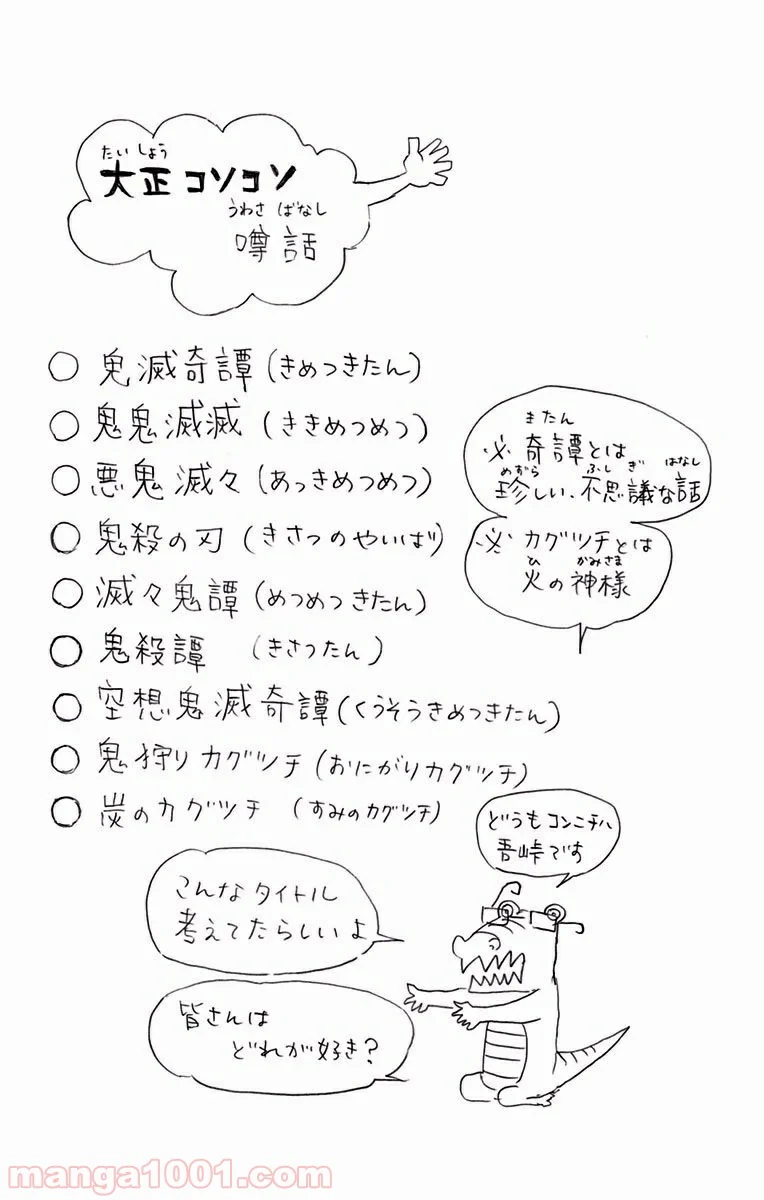 たいしょう
大正コソコソ
うわさ ばなし
噂話
○ 鬼滅奇譚(きめつきたん)
○ 鬼鬼滅滅(ききめつめつ)
○ 悪鬼滅々(あっきめつめつ)
○ 鬼殺の刃(きさつのやいば)
○ 滅々鬼譚(めつめつきたん)
○ 鬼殺譚(きさつたん)
○ 空想鬼滅奇譚(くうそうきめつきたん)
○ 鬼狩りカグツチ(おにがりカグツチ)
○ 炭のカグツチ(すみのカグツチ)
きたん
※奇譚とは
めずら ふしぎ はなし
珍しい、不思議な話
※カグツチとは
ひ かみさま
火の神様
どうもコンニチハ
吾峠です
こんなタイトル
考えてたらしいよ
皆さんは
どれが好き?
manga1001.com